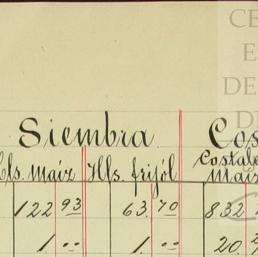 CE
E
DE
D
Siembra Cos
Hls. maíz Hls. frijól Costale
maíz
122 93 63. 70 832
1. " 1. " 20.